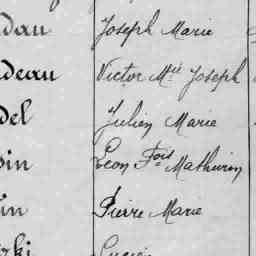 dau Joseph Marie
deau Victor M^ie Joseph
del Julien Marie
in Léon F^ois Mathurin
in Pierre Marie
ki Lucien